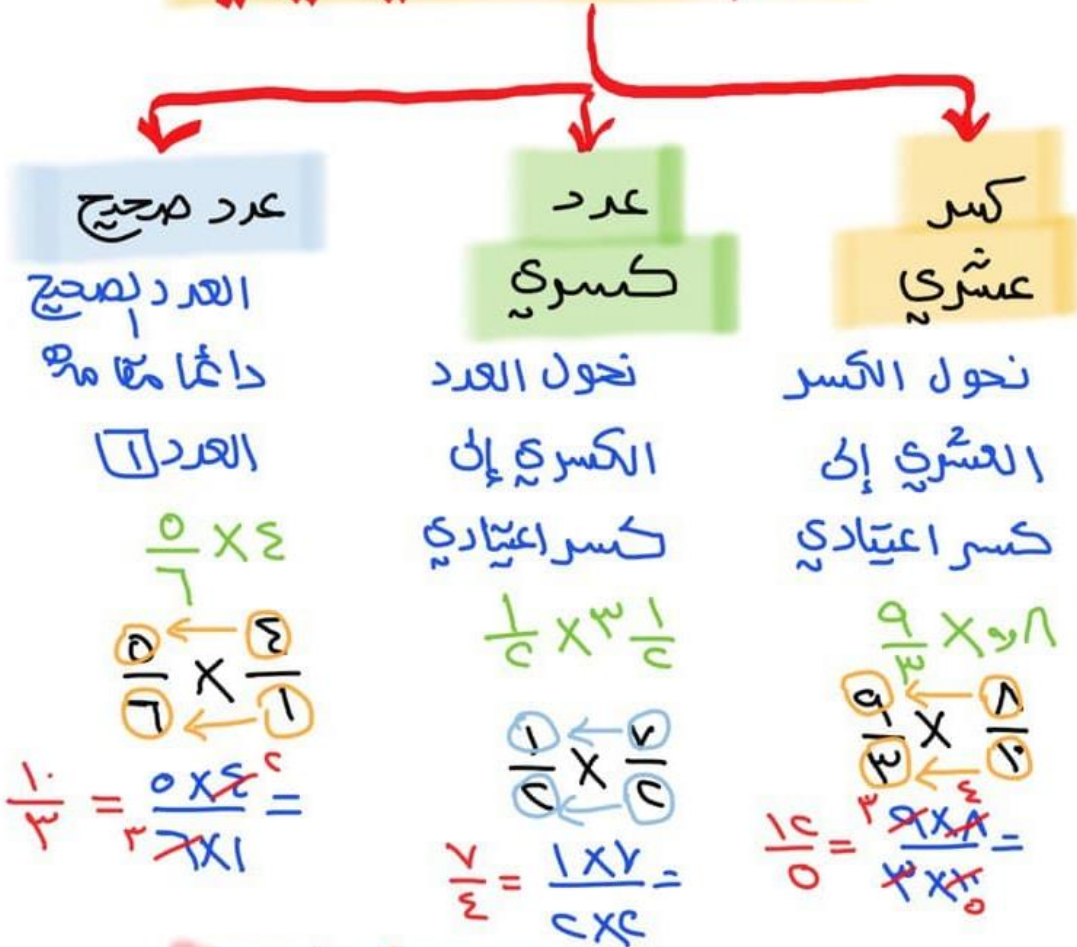 كسر
عشري
نحول الكسر
العشري إلى
كسر اعتيادي
٨و٠ × ٩/٣
٨/١٠ × ٩/٣
= ٨×٩ / ١٠×٣ = ١٢/٥
٤ ٣
٥
عدد
كسري
نحول العدد
الكسري إلى
كسر اعتيادي
٣ ١/٢ × ١/٢
٧/٢ × ١/٢
= ٧×١ / ٢×٢ = ٧/٤
عدد صحيح
العدد الصحيح
دائما مقامه
العدد ١
٤ × ٥/٦
٤/١ × ٥/٦
= ٤×٥ / ١×٦ = ١٠/٣
٢
٣